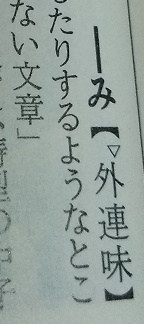 ━み【▽外連味】
たりするようなとこ
ない文章」